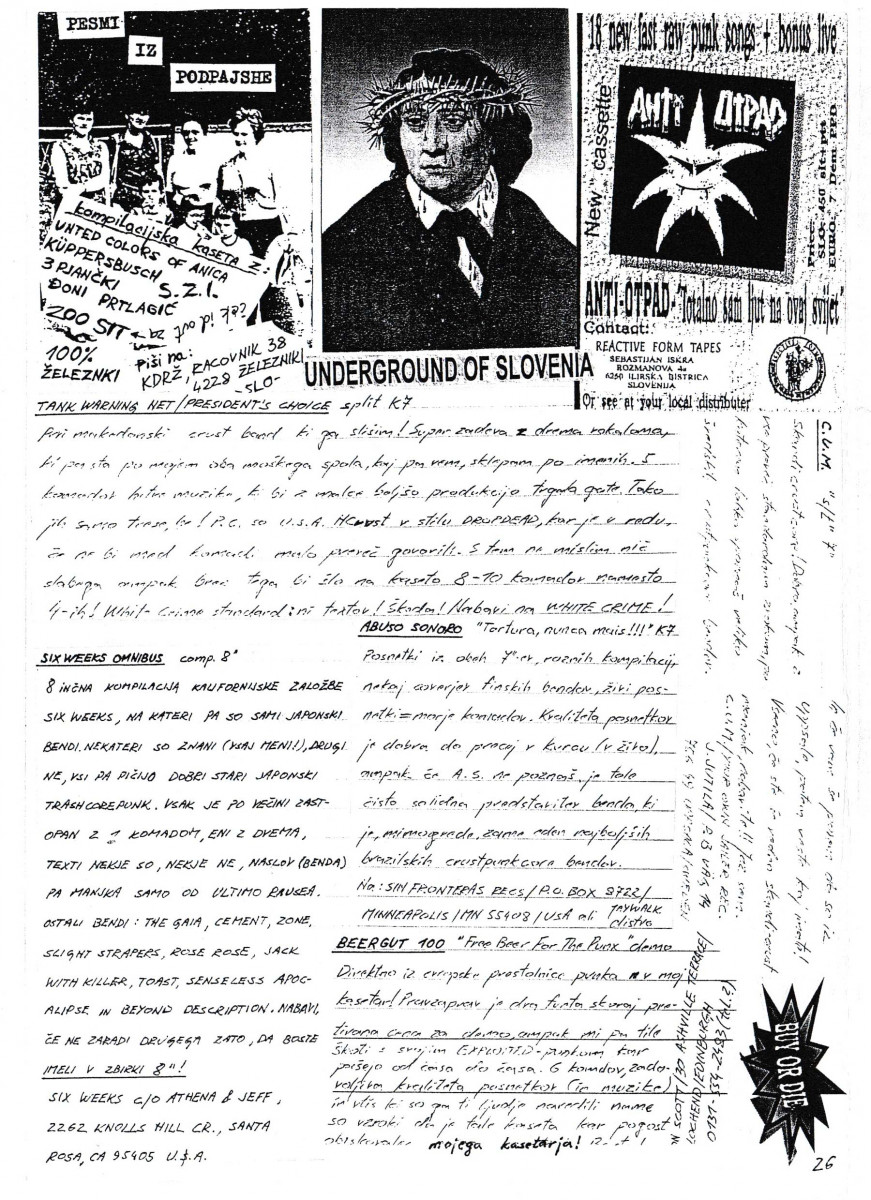 PESMI
IZ
PODPAJSHE
kompilacijska kaseta z:
UNTED COLORS OF ANICA
KÜPPERSBUSCH
S.Z.I.
3 PJANČKI
ĐONI PRTLAGIČ
200 SIT
100%
ŽELEZNKI
Piši na:
KDRŽ, RACOVNIK 38
4228 ŽELEZNIKI
-SLO-
UNDERGROUND OF SLOVENIA
18 new fast raw punk songs + bonus live
New cassette
ANTI OTPAD
Price:
SLO: 450 sit + pts
EURO: 7 Dem PPD
ANTI-OTPAD-"Totalno sam ljut na ovaj svijet"
Contact:
REACTIVE FORM TAPES
SEBASTIJAN ISKRA
ROZMANOVA 4a
6250 ILIRSKA BISTRICA
SLOVENIJA
Or see at your local distributer
TANK WARNING NET/PRESIDENT'S CHOICE split K7
Prvi makedonski crust band ki ga slišim! Super zadeva z dvema vokaloma,
ki pa sta po mojem oba moškega spola, kaj pa vem, sklepam po imenih. 5
komadov hitre muzike, ki bi z malce boljšo produkcijo trgala gate. Tako
jih samo trese, he! P.C. so U.S.A. HCrust v stilu DROPDEAD, kar je v redu,
če ne bi med komadi malo preveč govorili. S tem ne mislim nič
slabega ampak brez tega bi šlo na kaseto 8-10 komadov namesto
4-ih! White Crime standard: ni textov! Škoda! Nabavi na WHITE CRIME!
SIX WEEKS OMNIBUS comp. 8"
8 INČNA KOMPILACIJA KALIFORNIJSKE ZALOŽBE
SIX WEEKS, NA KATERI PA SO SAMI JAPONSKI
BENDI. NEKATERI SO ZNANI (VSAJ MENI!), DRUGI
NE, VSI PA PIČIJO DOBRI STARI JAPONSKI
TRASHCOREPUNK. VSAK JE PO VEČINI ZAST-
OPAN Z 1 KOMADOM, ENI Z DVEMA,
TEXTI NEKJE SO, NEKJE NE, NASLOV (BENDA)
PA MANJKA SAMO OD ULTIMO RAUSEA.
OSTALI BENDI: THE GAIA, CEMENT, ZONE,
SLIGHT STRAPERS, ROSE ROSE, JACK
WITH KILLER, TOAST, SENSELESS APOC-
ALIPSE IN BEYOND DESCRIPTION. NABAVI,
ČE NE ZARADI DRUGEGA ZATO, DA BOSTE
IMELI V ZBIRKI 8"!
SIX WEEKS C/O ATHENA & JEFF,
2262 KNOLLS HILL CR., SANTA
ROSA, CA 95405 U.S.A.
ABUSO SONORO "Tortura, nunca mais!!!" K7
Posnetki iz obeh 7"-ev, raznih kompilacij,
nekaj coverjev finskih bendov, živi pos-
netki = morje komadov. Kvaliteta posnetkov
je dobra, do precej v kurcu (v živo),
ampak če A.S. ne poznaš, je tole
čisto solidna predstavitev benda, ki
je, mimogrede, zame eden najboljših
brazilskih crustpunkcore bendov.
Na: SIN FRONTERAS RECS/P.O. BOX 8722/
MINNEAPOLIS/MN 55408/USA ali JAYWALK
distro
BEERGUT 100 "Free Beer For The Punx" demo
Direktno iz evropske prestolnice punka v moj
kasetar! Pravzaprav je dva funta skoraj pre-
tirana cena za demo, ampak mi pa tile
Škoti s svojim EXPLOITED-punkom kar
pašejo od časa do časa. 6 komadov, zado-
voljiva kvaliteta posnetkov (in muzike)
in vtis ki so ga ti ljudje naredili name
so vzroki da je tale kaseta kar pogost
obiskovalec mojega kasetarja!
SCOTT/30 ASHVILLE TERRACE/
LOCHEND/EDINBURGH
0131-554-2483 (tel.?)
C.U.M. "s/t" 7"
Skandi crust
J. SUTILA
C.U.M/YOUR OWN JAILER REC.
BUY OR DIE
26